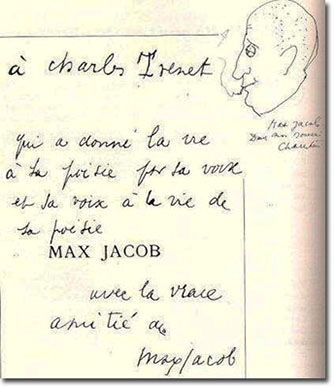 à Charles Trenet
Max Jacob
qui a donné la vie
à sa poésie par sa voix
et sa voix à la vie de
sa poésie
MAX JACOB
avec la vraie
amitié de
Max Jacob